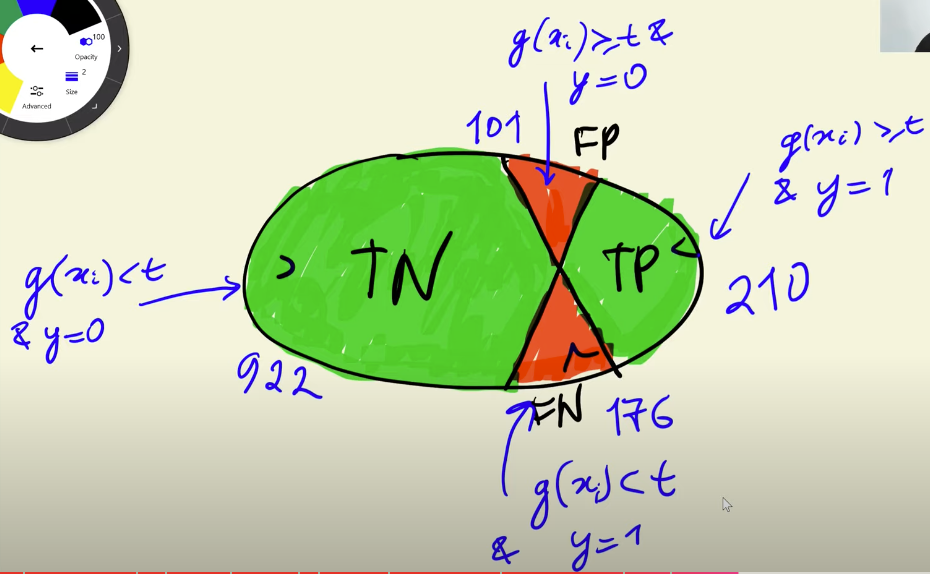 100
Opacity
2
Size
Advanced
g(xi) ⩾ t &
y = 0
101
FP
g(xi) ⩾ t
& y = 1
TN
TP
g(xi) < t
& y = 0
210
922
FN
176
g(xi) < t
& y = 1